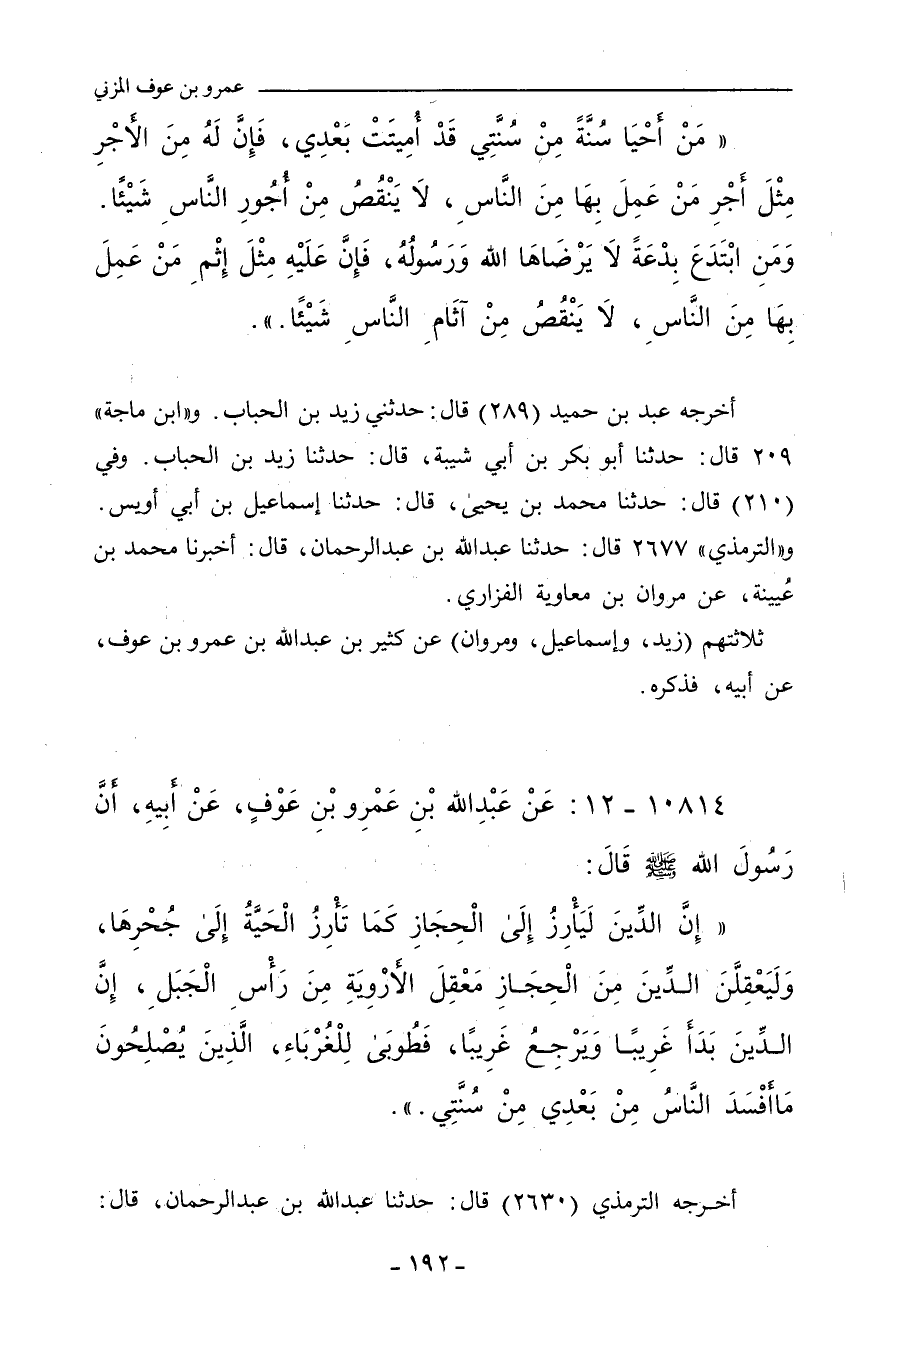 عمرو بن عوف المزني
« مَنْ أَحْيَا سُنَّةً مِنْ سُنَّتِي قَدْ أُمِيتَتْ بَعْدِي، فَإِنَّ لَهُ مِنَ الأَجْرِ
مِثْلَ أَجْرِ مَنْ عَمِلَ بِهَا مِنَ النَّاسِ، لَا يَنْقُصُ مِنْ أُجُورِ النَّاسِ شَيْئًا.
وَمَنِ ابْتَدَعَ بِدْعَةً لَا يَرْضَاهَا الله وَرَسُولُهُ، فَإِنَّ عَلَيْهِ مِثْلَ إِثْمِ مَنْ عَمِلَ
بِهَا مِنَ النَّاسِ، لَا يَنْقُصُ مِنْ آثَامِ النَّاسِ شَيْئًا.».
أخرجه عبد بن حميد (٢٨٩) قال: حدثني زيد بن الحباب. و«ابن ماجة»
٢٠٩ قال: حدثنا أبو بكر بن أبي شيبة، قال: حدثنا زيد بن الحباب. وفي
(٢١٠) قال: حدثنا محمد بن يحيىٰ، قال: حدثنا إسماعيل بن أبي أويس.
و«الترمذي» ٢٦٧٧ قال: حدثنا عبدالله بن عبدالرحمان، قال: أخبرنا محمد بن
عُيينة، عن مروان بن معاوية الفزاري.
ثلاثتهم (زيد، وإسماعيل، ومروان) عن كثير بن عبدالله بن عمرو بن عوف،
عن أبيه، فذكره.
١٠٨١٤ - ١٢: عَنْ عَبْدِالله بْنِ عَمْرِو بْنِ عَوْفٍ، عَنْ أَبِيهِ، أَنَّ
رَسُولَ الله ﷺ قَالَ:
« إِنَّ الدِّينَ لَيَأْرِزُ إِلَىٰ الْحِجَازِ كَمَا تَأْرِزُ الْحَيَّةُ إِلَىٰ جُحْرِهَا،
وَلَيَعْقِلَنَّ الـدِّينَ مِنَ الْحِجَـازِ مَعْقِلَ الأَرْوِيَةِ مِنَ رَأْسِ الْجَبَلِ، إِنَّ
الـدِّينَ بَدَأَ غَرِيبًـا وَيَرْجِـعُ غَرِيبًا، فَطُوبَىٰ لِلْغُرْبَاءِ، الَّذِينَ يُصْلِحُونَ
مَاأَفْسَدَ النَّاسُ مِنْ بَعْدِي مِنْ سُنَّتِي.».
أخـرجه الترمذي (٢٦٣٠) قال: حدثنا عبدالله بن عبدالرحمان، قال:
- ١٩٢ -